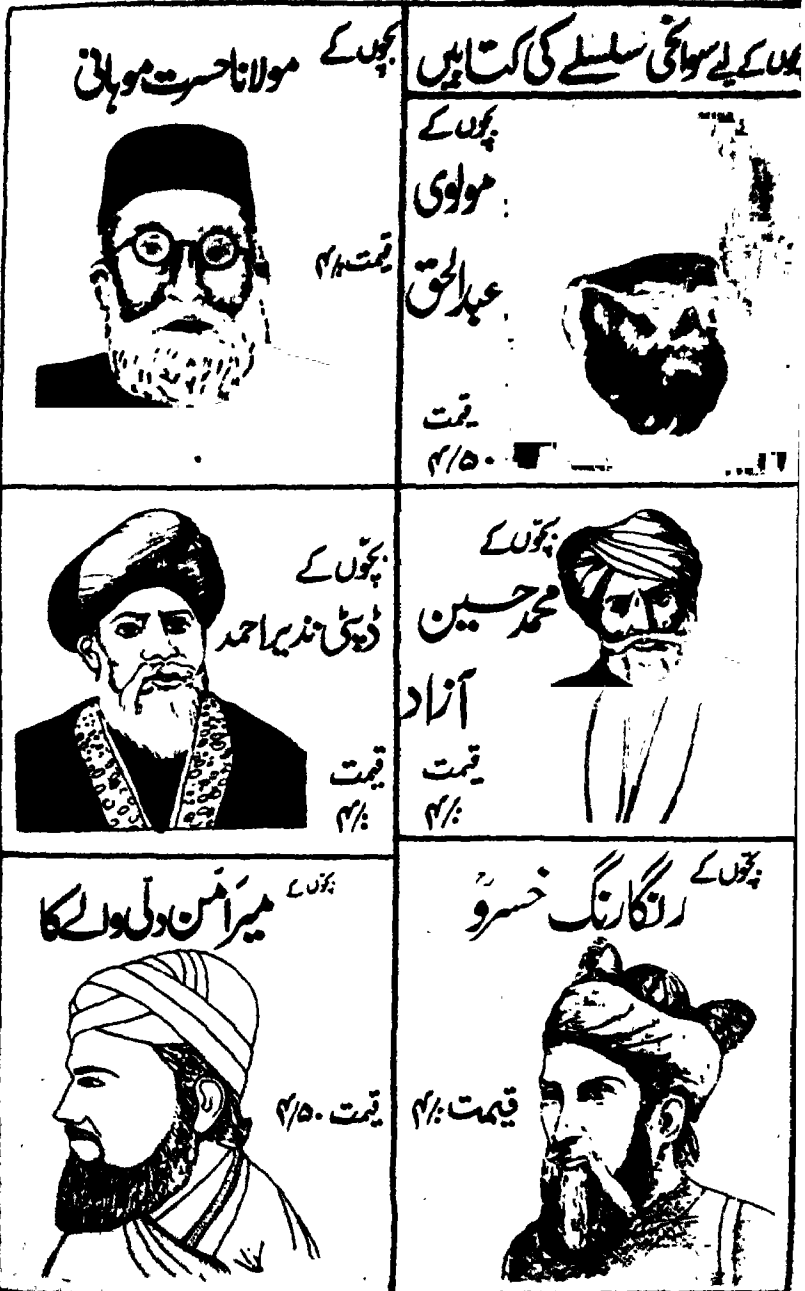 بچوں کے لیے سوانحی سلسلے کی کتابیں
بچوں کے
مولوی
عبدالحق
قیمت
۴/۵۰
بچوں کے
مولانا حسرت موہانی
قیمت ۴/:
بچّوں کے
محمد حسین
آزاد
قیمت
۴/:
بچّوں کے
ڈپٹی نذیر احمد
قیمت
۴/:
بچّوں کے
رنگا رنگ خسروؒ
قیمت ۴/:
بچوں کے
میر امّن دلّی والے کا
قیمت ۴/۵۰